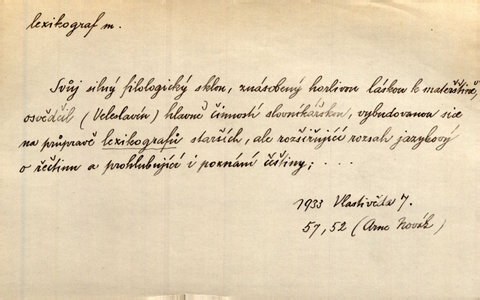 lexikograf m.
Svůj silný filologický sklon, znásobený horlivou láskou k mateřštině,
osvědčil (Veleslavín) hlavně činností slovníkářskou, vybudovanou sice
na průpravě lexikografů starších, ale rozšiřující rozsah jazykový
o řečtinu a prohlubující i poznání češtiny; . . .
1933 Vlastivěda 7.
57, 52 (Arne Novák)